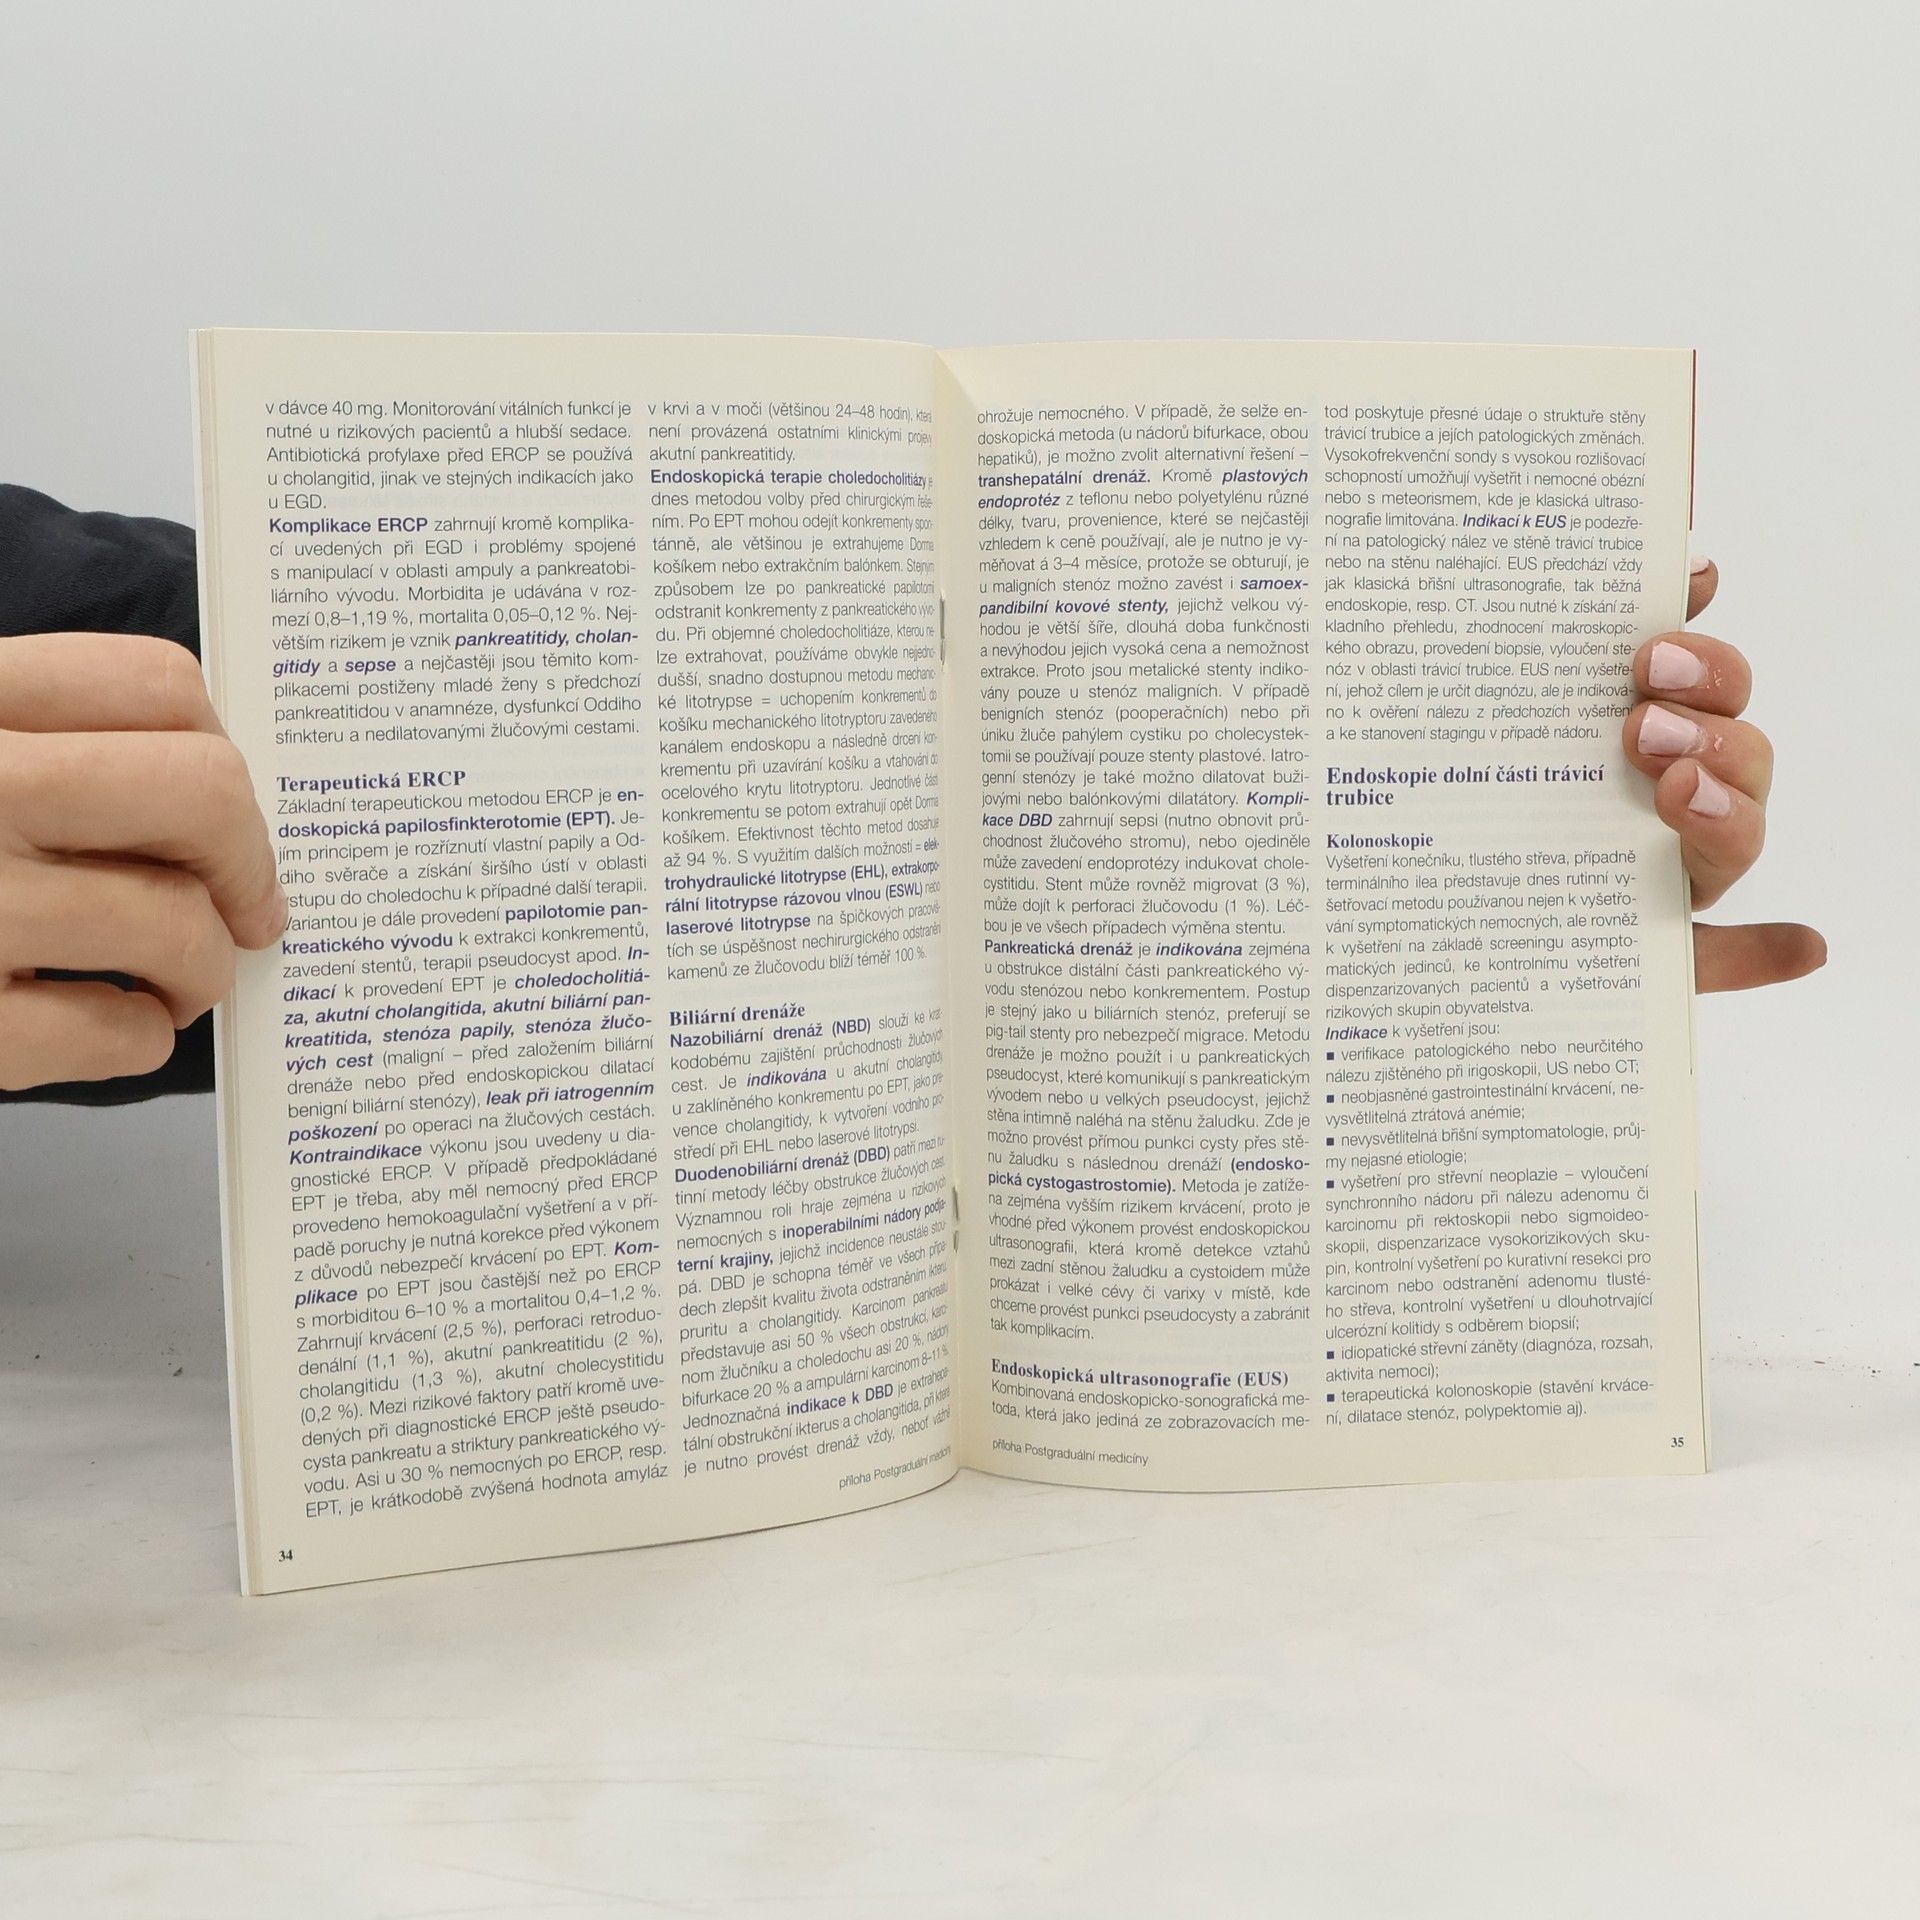 v dávce 40 mg. Monitorování vitálních funkcí je
nutné u rizikových pacientů a hlubší sedace.
Antibiotická profylaxe před ERCP se používá
u cholangitid, jinak ve stejných indikacích jako
u EGD.
Komplikace ERCP zahrnují kromě komplika-
cí uvedených při EGD i problémy spojené
s manipulací v oblasti ampuly a pankreatobi-
liárního vývodu. Morbidita je udávána v roz-
mezí 0,8–1,19 %, mortalita 0,05–0,12 %. Nej-
větším rizikem je vznik pankreatitidy, cholan-
gitidy a sepse a nejčastěji jsou těmito kom-
plikacemi postiženy mladé ženy s předchozí
pankreatitidou v anamnéze, dysfunkcí Oddiho
sfinkteru a nedilatovanými žlučovými cestami.
Terapeutická ERCP
Základní terapeutickou metodou ERCP je en-
doskopická papilosfinkterotomie (EPT). Je-
jím principem je rozříznutí vlastní papily a Od-
diho svěrače a získání širšího ústí v oblasti
vstupu do choledochu k případné další terapii.
Variantou je dále provedení papilotomie pan-
kreatického vývodu k extrakci konkrementů,
zavedení stentů, terapii pseudocyst apod. In-
dikací k provedení EPT je choledocholitiá-
za, akutní cholangitida, akutní biliární pan-
kreatitida, stenóza papily, stenóza žlučo-
vých cest (maligní – před založením biliární
drenáže nebo před endoskopickou dilatací
benigní biliární stenózy), leak při iatrogenním
poškození po operaci na žlučových cestách.
Kontraindikace výkonu jsou uvedeny u dia-
gnostické ERCP. V případě předpokládané
EPT je třeba, aby měl nemocný před ERCP
provedeno hemokoagulační vyšetření a v pří-
padě poruchy je nutná korekce před výkonem
z důvodů nebezpečí krvácení po EPT. Kom-
plikace po EPT jsou častější než po ERCP
s morbiditou 6–10 % a mortalitou 0,4–1,2 %.
Zahrnují krvácení (2,5 %), perforaci retroduo-
denální (1,1 %), akutní pankreatitidu (2 %),
cholangitidu (1,3 %), akutní cholecystitidu
(0,2 %). Mezi rizikové faktory patří kromě uve-
dených při diagnostické ERCP ještě pseudo-
cysta pankreatu a striktury pankreatického vý-
vodu. Asi u 30 % nemocných po ERCP, resp.
EPT, je krátkodobě zvýšená hodnota amyláz
34
v krvi a v moči (většinou 24–48 hodin), která
není provázená ostatními klinickými projevy
akutní pankreatitidy.
Endoskopická terapie choledocholitiázy je
dnes metodou volby před chirurgickým řeše-
ním. Po EPT mohou odejít konkrementy spon-
tánně, ale většinou je extrahujeme Dormia
košíkem nebo extrakčním balónkem. Stejným
způsobem lze po pankreatické papilotomii
odstranit konkrementy z pankreatického vývo-
du. Při objemné choledocholitiáze, kterou ne-
lze extrahovat, používáme obvykle nejjedno-
dušší, snadno dostupnou metodu mechanic-
ké litotrypse = uchopením konkrementů do
košíku mechanického litotryptoru zavedeného
kanálem endoskopu a následně drcení kon-
krementu při uzavírání košíku a vtahování do
ocelového krytu litotryptoru. Jednotlivé části
konkrementu se potom extrahují opět Dormia
košíkem. Efektivnost těchto metod dosahuje
až 94 %. S využitím dalších možností = elek-
trohydraulické litotrypse (EHL), extrakorpo-
rální litotrypse rázovou vlnou (ESWL) nebo
laserové litotrypse na špičkových pracoviš-
tích se úspěšnost nechirurgického odstranění
kamenů ze žlučovodu blíží téměř 100 %.
Biliární drenáže
Nazobiliární drenáž (NBD) slouží ke krát-
kodobému zajištění průchodnosti žlučových
cest. Je indikována u akutní cholangitidy
u zaklíněného konkrementu po EPT, jako pre-
vence cholangitidy, k vytvoření vodního pro-
středí při EHL nebo laserové litotrypsi.
Duodenobiliární drenáž (DBD) patří mezi ru-
tinní metody léčby obstrukce žlučových cest.
Významnou roli hraje zejména u rizikových
nemocných s inoperabilními nádory podja-
terní krajiny, jejichž incidence neustále stou-
pá. DBD je schopna téměř ve všech přípa-
dech zlepšit kvalitu života odstraněním ikteru,
pruritu a cholangitidy. Karcinom pankreatu
představuje asi 50 % všech obstrukcí, karci-
nom žlučníku a choledochu asi 20 %, nádory
bifurkace 20 % a ampulární karcinom 8–11 %.
Jednoznačná indikace k DBD je extrahepa-
tální obstrukční ikterus a cholangitida, při které
je nutno provést drenáž vždy, neboť vážně
příloha Postgraduální medicíny
ohrožuje nemocného. V případě, že selže en-
doskopická metoda (u nádorů bifurkace, obou
hepatiků), je možno zvolit alternativní řešení –
transhepatální drenáž. Kromě plastových
endoprotéz z teflonu nebo polyetylénu různé
délky, tvaru, provenience, které se nejčastěji
vzhledem k ceně používají, ale je nutno je vy-
měňovat á 3–4 měsíce, protože se obturují, je
u maligních stenóz možno zavést i samoex-
pandibilní kovové stenty, jejichž velkou vý-
hodou je větší šíře, dlouhá doba funkčnosti
a nevýhodou jejich vysoká cena a nemožnost
extrakce. Proto jsou metalické stenty indiko-
vány pouze u stenóz maligních. V případě
benigních stenóz (pooperačních) nebo při
úniku žluče pahýlem cystiku po cholecystek-
tomii se používají pouze stenty plastové. Iatro-
genní stenózy je také možno dilatovat buži-
jovými nebo balónkovými dilatátory. Kompli-
kace DBD zahrnují sepsi (nutno obnovit prů-
chodnost žlučového stromu), nebo ojediněle
může zavedení endoprotézy indukovat chole-
cystitidu. Stent může rovněž migrovat (3 %),
může dojít k perforaci žlučovodu (1 %). Léč-
bou je ve všech případech výměna stentu.
Pankreatická drenáž je indikována zejména
u obstrukce distální části pankreatického vý-
vodu stenózou nebo konkrementem. Postup
je stejný jako u biliárních stenóz, preferují se
pig-tail stenty pro nebezpečí migrace. Metodu
drenáže je možno použít i u pankreatických
pseudocyst, které komunikují s pankreatickým
vývodem nebo u velkých pseudocyst, jejichž
stěna intimně naléhá na stěnu žaludku. Zde je
možno provést přímou punkci cysty přes stě-
nu žaludku s následnou drenáží (endosko-
pická cystogastrostomie). Metoda je zatíže-
na zejména vyšším rizikem krvácení, proto je
vhodné před výkonem provést endoskopickou
ultrasonografii, která kromě detekce vztahů
mezi zadní stěnou žaludku a cystoidem může
prokázat i velké cévy či varixy v místě, kde
chceme provést punkci pseudocysty a zabránit
tak komplikacím.
Endoskopická ultrasonografie (EUS)
Kombinovaná endoskopicko-sonografická me-
toda, která jako jediná ze zobrazovacích me-
příloha Postgraduální medicíny
tod poskytuje přesné údaje o struktuře stěny
trávicí trubice a jejích patologických změnách.
Vysokofrekvenční sondy s vysokou rozlišovací
schopností umožňují vyšetřit i nemocné obézní
nebo s meteorismem, kde je klasická ultraso-
nografie limitována. Indikací k EUS je podezře-
ní na patologický nález ve stěně trávicí trubice
nebo na stěnu naléhající. EUS předchází vždy
jak klasická břišní ultrasonografie, tak běžná
endoskopie, resp. CT. Jsou nutné k získání zá-
kladního přehledu, zhodnocení makroskopic-
kého obrazu, provedení biopsie, vyloučení ste-
nóz v oblasti trávicí trubice. EUS není vyšetře-
ní, jehož cílem je určit diagnózu, ale je indiková-
no k ověření nálezu z předchozích vyšetření
a ke stanovení stagingu v případě nádoru.
Endoskopie dolní části trávicí
trubice
Kolonoskopie
Vyšetření konečníku, tlustého střeva, případně
terminálního ilea představuje dnes rutinní vy-
šetřovací metodu používanou nejen k vyšetřo-
vání symptomatických nemocných, ale rovněž
k vyšetření na základě screeningu asympto-
matických jedinců, ke kontrolnímu vyšetření
dispenzarizovaných pacientů a vyšetřování
rizikových skupin obyvatelstva.
Indikace k vyšetření jsou:
■ verifikace patologického nebo neurčitého
nálezu zjištěného při irigoskopii, US nebo CT;
■ neobjasněné gastrointestinální krvácení, ne-
vysvětlitelná ztrátová anémie;
■ nevysvětlitelná břišní symptomatologie, průj-
my nejasné etiologie;
■ vyšetření pro střevní neoplazie – vyloučení
synchronního nádoru při nálezu adenomu či
karcinomu při rektoskopii nebo sigmoideo-
skopii, dispenzarizace vysokorizikových sku-
pin, kontrolní vyšetření po kurativní resekci pro
karcinom nebo odstranění adenomu tlusté-
ho střeva, kontrolní vyšetření u dlouhotrvající
ulcerózní kolitidy s odběrem biopsií;
■ idiopatické střevní záněty (diagnóza, rozsah,
aktivita nemoci);
■ terapeutická kolonoskopie (stavění krváce-
ní, dilatace stenóz, polypektomie aj).
35